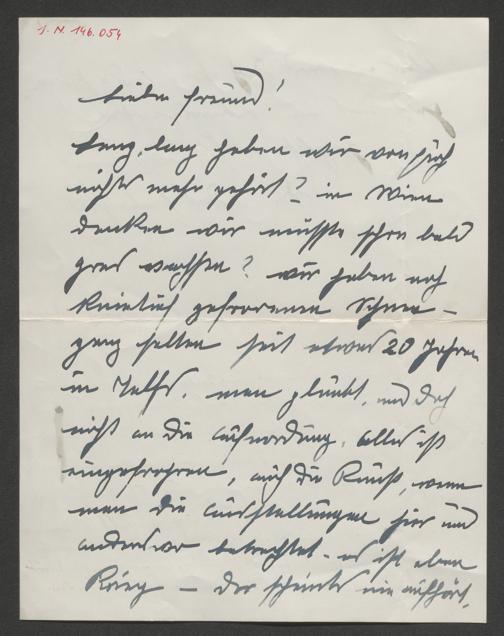 J. N. 146.054
Lieber Freund!
lang, lang haben wir von Euch
nichts mehr gehört? in Wien
denken wir müsste schon bald
gras wachsen? wir haben noch
knietief gefrorenen Schnee –
ganz selten seit etwas 20 Jahren
in Telfs. man glaubt, und doch
nicht an die Aufnordung. alles ist
eingefrohren, auch die Kunst, wenn
man die Ausstellungen hier und
anderswo betrachtet – es ist eben
Krieg – der scheints nie aufhört.